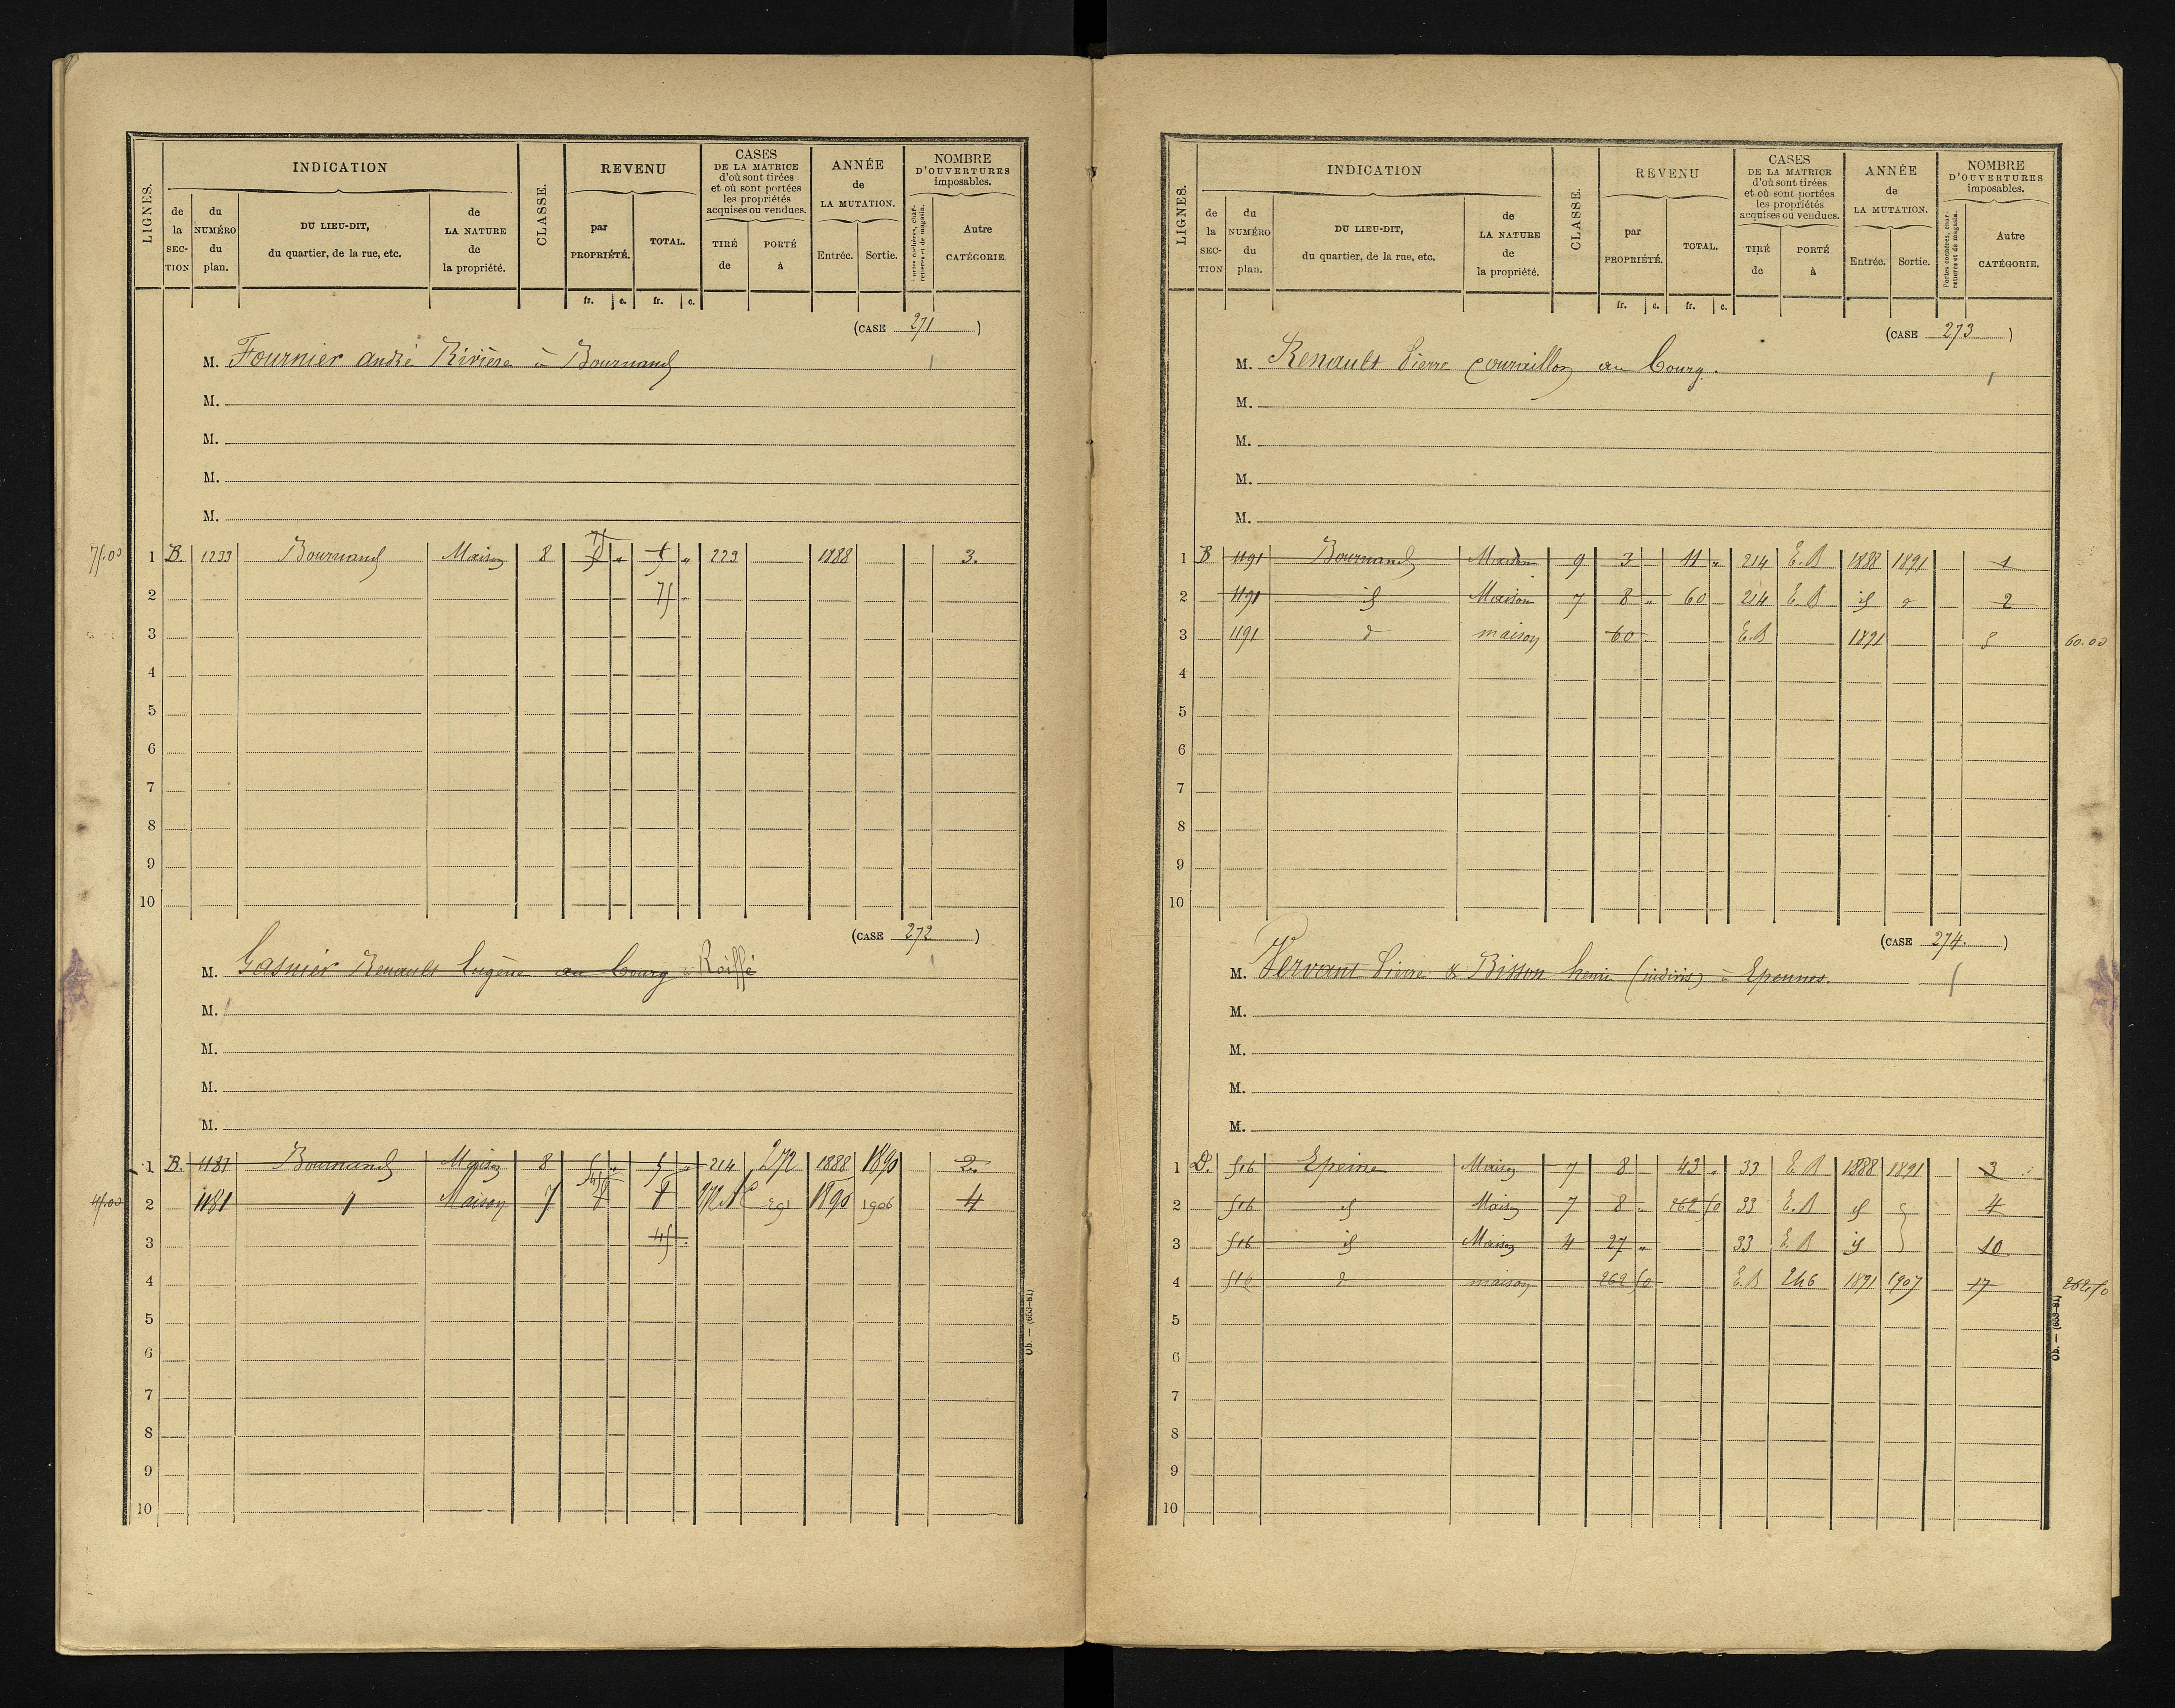 LIGNES.
INDICATION
CLASSE.
REVENU
CASES
DE LA MATRICE
d'où sont tirées
et où sont portées
les propriétés
acquises ou vendues.
ANNÉE
de
LA MUTATION.
NOMBRE
D'OUVERTURES
imposables.
de
la
SEC-
TION
du
NUMÉRO
du
plan.
DU LIEU-DIT,
du quartier, de la rue, etc.
de
LA NATURE
de
la propriété.
par
PROPRIÉTÉ.
TOTAL.
TIRÉ
de
PORTÉ
à
Entrée.
Sortie.
Portes cochères, char-
retières et de magasin.
Autre
CATÉGORIE.
fr. c. fr. c.
(CASE 271)
M. Fournier André Rivière à Bournand
M.
M.
M.
M.
1 B. 1233 Bournand Maison 8 " " 223 1888 3.
2 75
3
4
5
6
7
8
9
10
(CASE 272)
M. Gasnier Renault Eugène au bourg à Roiffé
M.
M.
M.
M.
1 B. 1181 Bournand Maison 8 5 " 5 " 214 272 1888 1890 2.
2 1181 Maison 7 291 1890 1906 4
3 45
4
5
6
7
8
9
10
Ob. — (653-81)
LIGNES.
INDICATION
CLASSE.
REVENU
CASES
DE LA MATRICE
d'où sont tirées
et où sont portées
les propriétés
acquises ou vendues.
ANNÉE
de
LA MUTATION.
NOMBRE
D'OUVERTURES
imposables.
de
la
SEC-
TION
du
NUMÉRO
du
plan.
DU LIEU-DIT,
du quartier, de la rue, etc.
de
LA NATURE
de
la propriété.
par
PROPRIÉTÉ.
TOTAL.
TIRÉ
de
PORTÉ
à
Entrée.
Sortie.
Portes cochères, char-
retières et de magasin.
Autre
CATÉGORIE.
fr. c. fr. c.
(CASE 273)
M. Renault Pierre Courvillon au bourg.
M.
M.
M.
M.
1 B 1191 Bournand Maison 9 3 11 " 214 E. B 1888 1891 1
2 1191 id Maison 7 8 " 60 214 E. B id 2
3 1191 d maison 60 E. B 1891 60.00
4
5
6
7
8
9
10
(CASE 274.)
M. Vervant Pierre & Bisson henri (indivis) à Epennes.
M.
M.
M.
M.
1 D. 516 Epeine Maison 7 8 43 " 33 E. B 1888 1891 3
2 516 id Maison 7 8 " 262 50 33 E. B id 4
3 516 id Maison 4 27 " 33 E. B id 10
4 516 d maison 262 50 E. B 246 1891 1907 17 262.50
5
6
7
8
9
10
Ob. — (653-81)